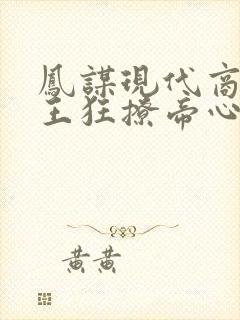 鳳謀現代商
王狂撩帝心
黃黃